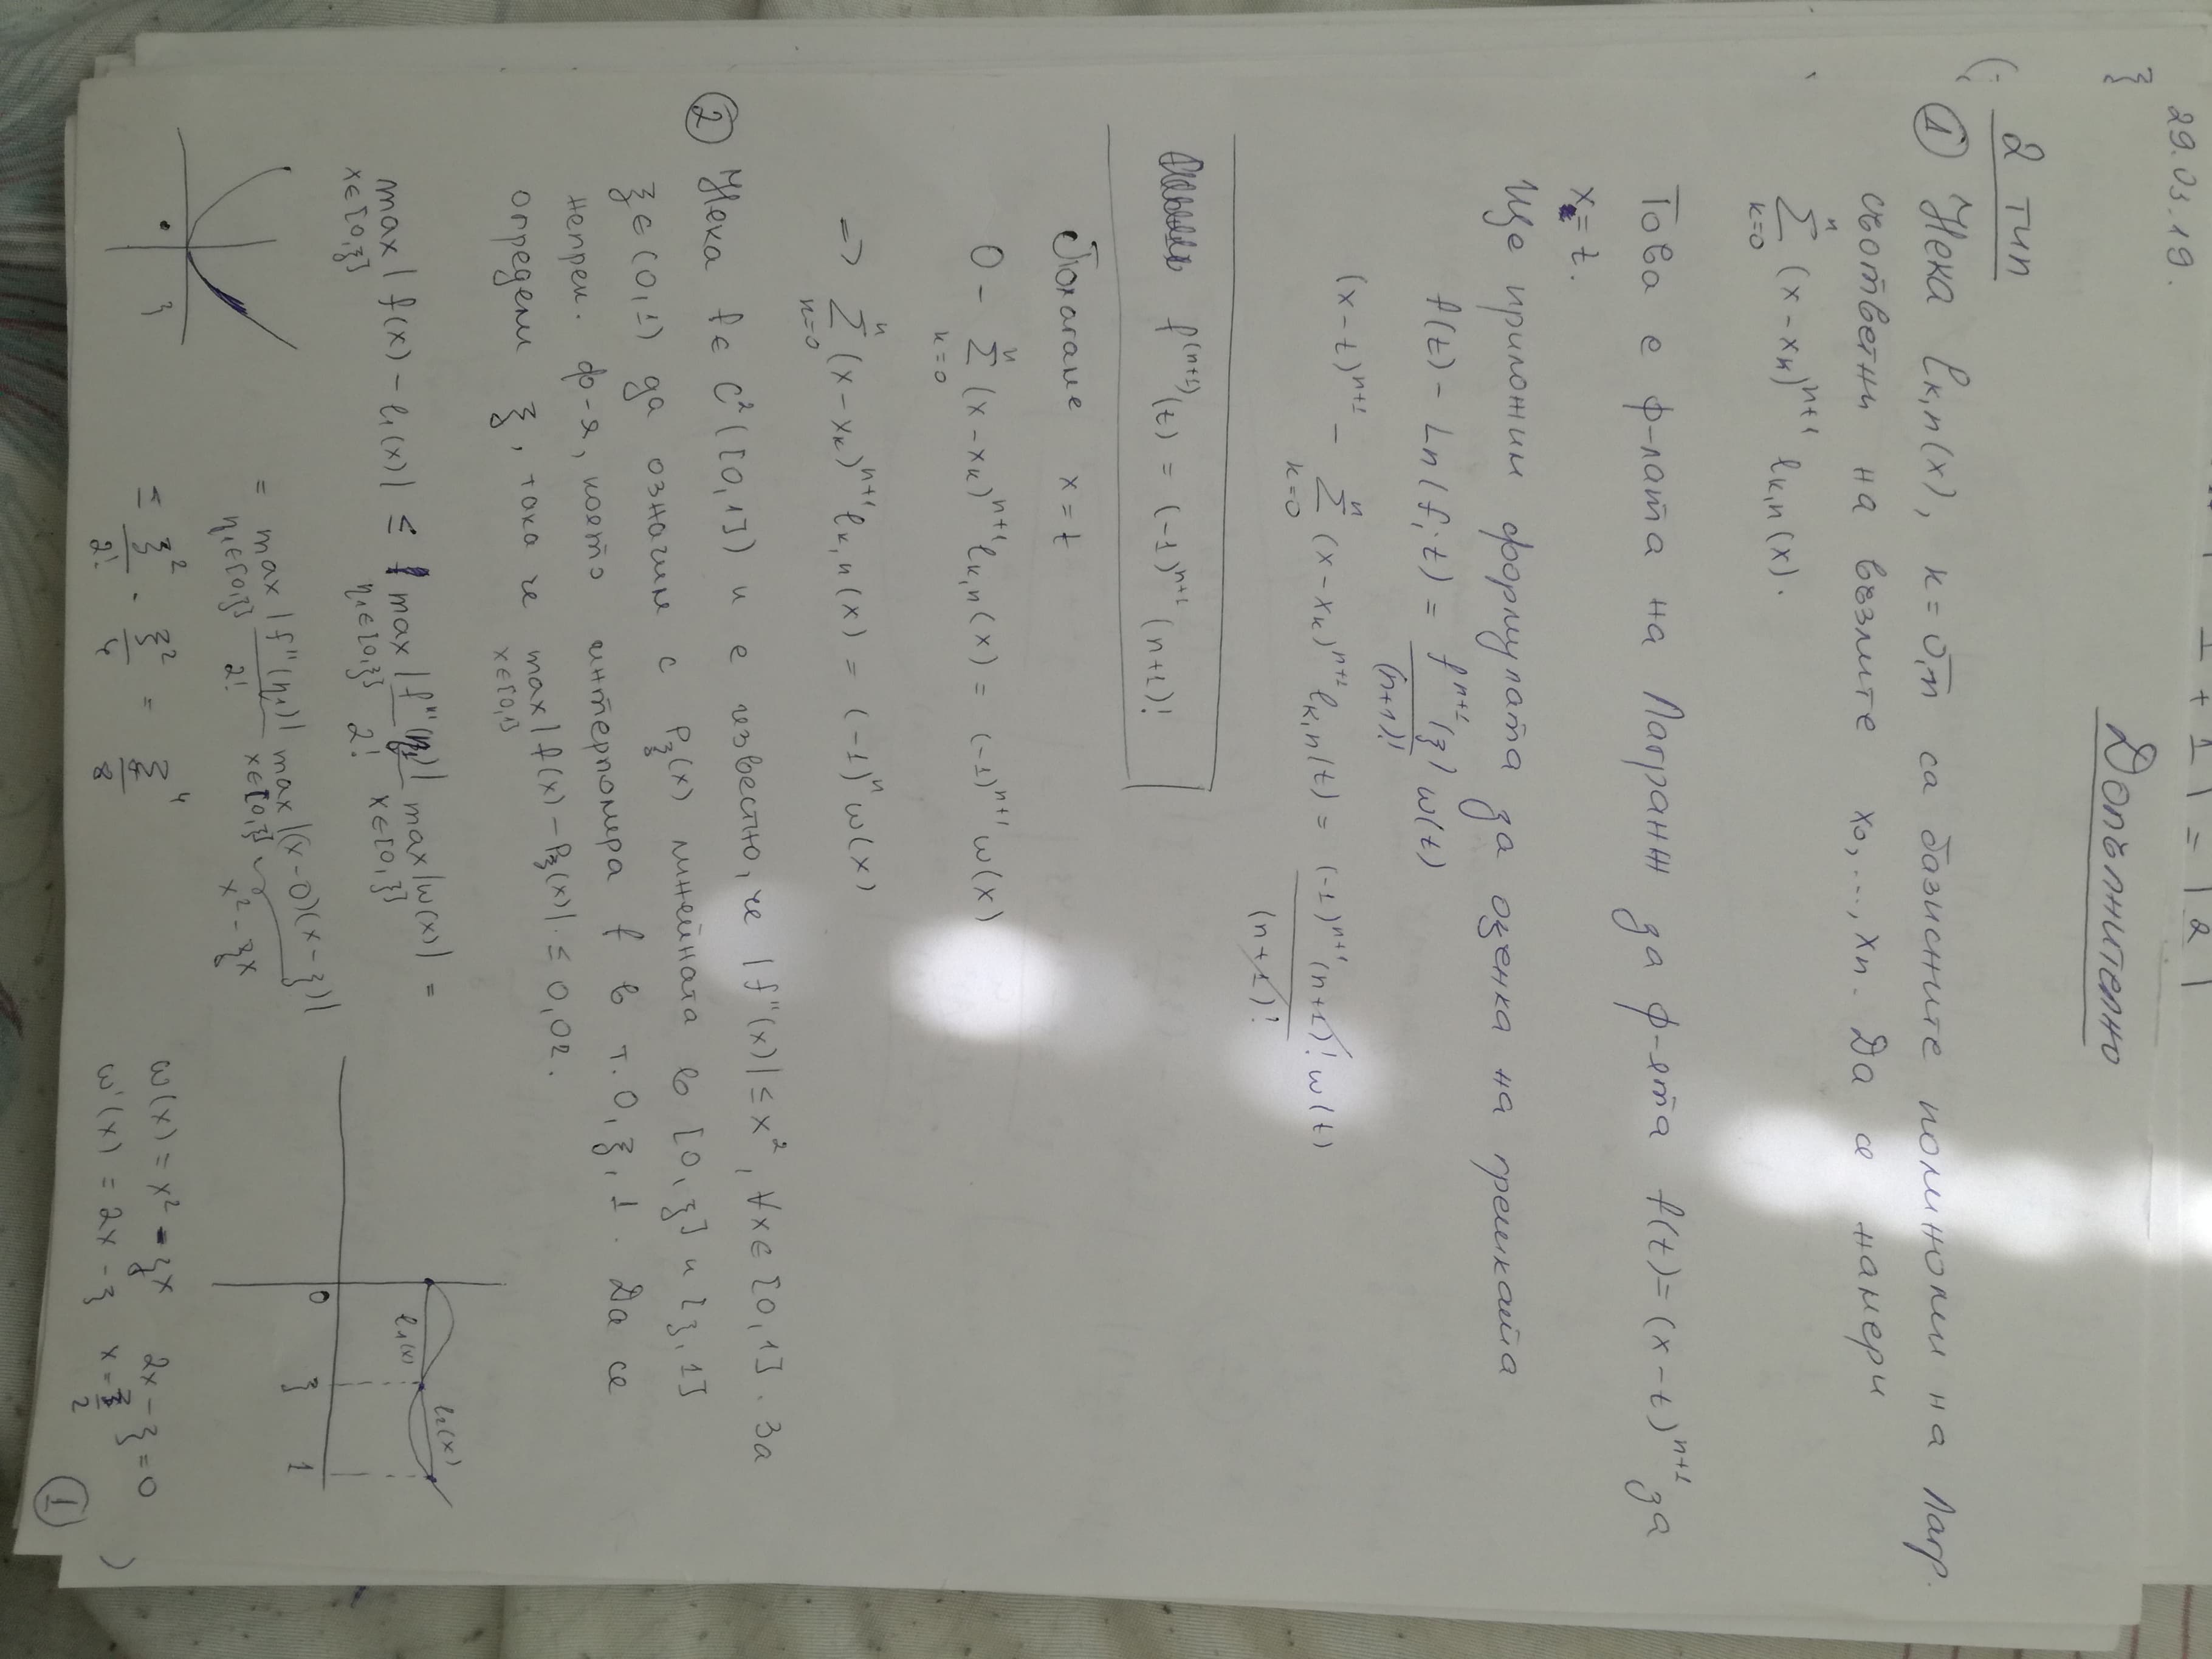 + 1 | = | 2 |
29.03.19.
Допълнително
2 тип
① Нека lk,n(x), k = 0,n са базисните полиноми на Лагр.
съответни на възлите x0, ..., xn. Да се намери
∑_{k=0}^{n} (x - xk)^{n+1} lk,n(x).
Това е ф-лата на Лагранж за ф-ята f(t) = (x - t)^{n+1} за
x = t.
Ще приложим формулата за оценка на грешката
f(t) - Ln(f; t) = f^{n+1}(ξ) / (n+1)! ω(t)
(x - t)^{n+1} - ∑_{k=0}^{n} (x - xk)^{n+1} lk,n(t) = (-1)^{n+1} (n+1)! ω(t) / (n+1)!
f^{(n+1)}(t) = (-1)^{n+1} (n+1)!
Полагаме x = t
0 - ∑_{k=0}^{n} (x - xk)^{n+1} lk,n(x) = (-1)^{n+1} ω(x)
=> ∑_{k=0}^{n} (x - xk)^{n+1} lk,n(x) = (-1)^{n} ω(x)
② Нека f ∈ C²([0,1]) и е известно, че |f''(x)| ≤ x², ∀x ∈ [0,1]. За
ξ ∈ (0,1) да означим с Pξ(x) линейната в [0,ξ] и [ξ,1]
непрек. ф-я, която интерполира f в т. 0, ξ, 1. Да се
определи ξ, така че max_{x∈[0,1]} |f(x) - Pξ(x)| ≤ 0,02.
max_{x∈[0,ξ]} |f(x) - l1(x)| ≤ max_{η1∈[0,ξ]} |f''(η1)| / 2! max_{x∈[0,ξ]} |ω(x)| =
l2(x)
l1(x)
0 ξ 1
= max_{η1∈[0,ξ]} |f''(η1)| / 2! max_{x∈[0,ξ]} |(x-0)(x-ξ)|
x² - ξx
≤ ξ²/2! · ξ²/4 = ξ⁴/8
ξ
ω(x) = x² - ξx 2x - ξ = 0
ω'(x) = 2x - ξ x = ξ/2
①